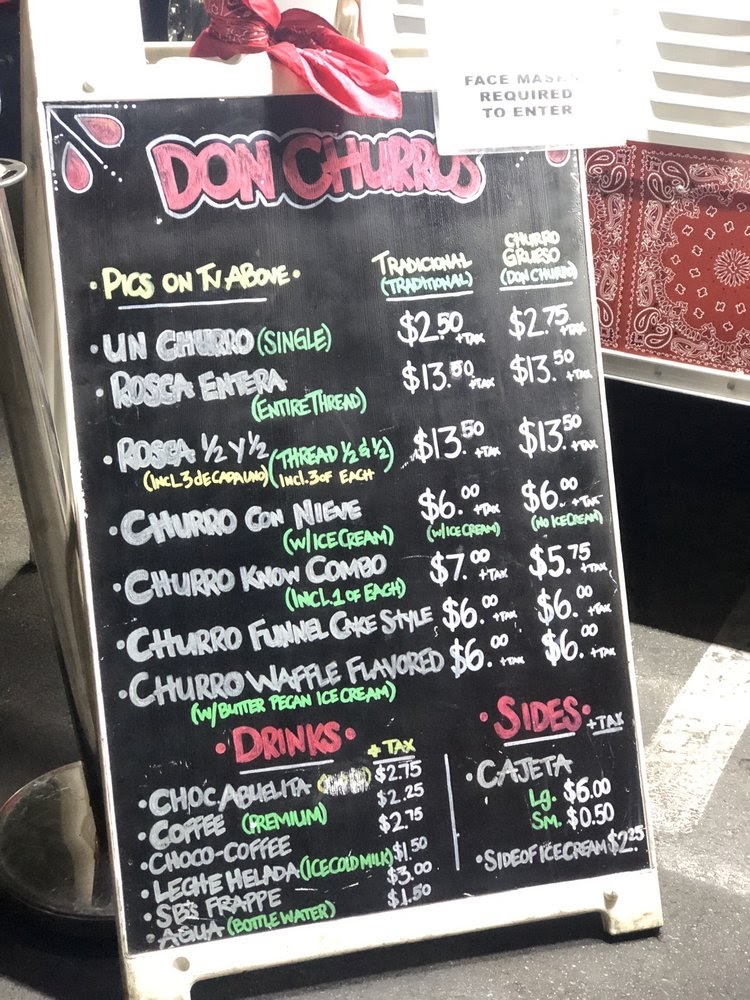 FACE MASKS
REQUIRED
TO ENTER
DON CHURROS
• PICS ON TV ABOVE •
TRADICIONAL
(TRADITIONAL)
CHURRO
GRUESO
(DON CHURRO)
• UN CHURRO (SINGLE) $2.50 +TAX $2.75 +TAX
• ROSCA ENTERA $13.50 +TAX $13.50 +TAX
(ENTIRE THREAD)
• ROSCA ½ Y ½ (THREAD ½ & ½) $13.50 +TAX $13.50 +TAX
(INCL. 3 de CADA UNO) INCL. 3 OF EACH
• CHURRO CON NIEVE $6.00 +TAX $6.00 +TAX
(W/ICE CREAM) (W/ICE CREAM) (NO ICE CREAM)
• CHURRO KNOW COMBO $7.00 +TAX $5.75 +TAX
(INCL. 1 OF EACH)
• CHURRO FUNNEL CAKE STYLE $6.00 +TAX $6.00 +TAX
• CHURRO WAFFLE FLAVORED $6.00 +TAX $6.00 +TAX
(W/BUTTER PECAN ICE CREAM)
• DRINKS •
+ TAX
• CHOC ABUELITA $2.75
• COFFEE (PREMIUM) $2.25
• CHOCO-COFFEE $2.75
• LECHE HELADA (ICE COLD MILK) $1.50
• SB'S FRAPPE $3.00
• AGUA (BOTTLE WATER) $1.50
• SIDES • +TAX
• CAJETA
Lg. $6.00
SM. $0.50
• SIDE OF ICE CREAM $2.25